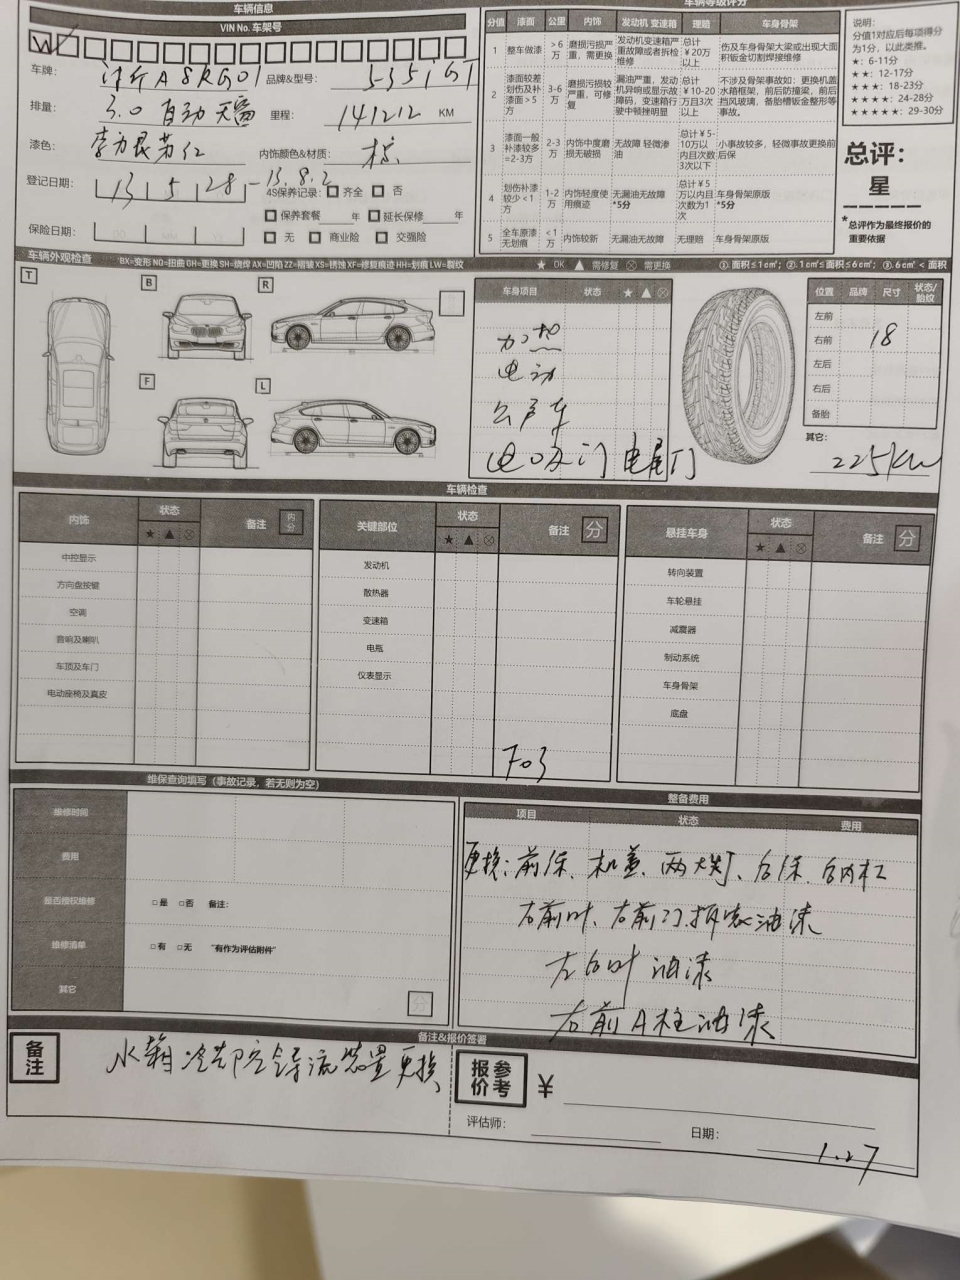 车辆信息
VIN No. 车架号
车牌: A8RG01 品牌&型号: 535iGT
排量: 3.0 自动 天窗 里程: 141212 KM
漆色: 红 内饰颜色&材质: 棕
登记日期: 13 5 28 - 13.8.2 4S保养记录: 齐全 否
保养套餐 年 延长保修 年
保险日期: 无 商业险 交强险
车辆等级评分
分值 漆面 公里 内饰 发动机 变速箱 理赔 车身骨架
1 整车做漆 >6万 磨损污损严重，需更换 发动机变速箱严重故障或者拆检维修 总计￥20万以上 伤及车身骨架大梁或出现大面积钣金切割焊接维修
2 漆面较差划伤及补漆面>5方 3-6万 磨损污损较严重，可修复 漏油严重，发动机异响或显示故障码，变速箱行驶中顿挫明显 总计￥10-20万且3次以上 不涉及骨架事故如：更换机盖水箱框架，前后防撞梁，前后挡风玻璃，备胎槽钣金整形等事故。
3 漆面一般补漆较多=2-3方 2-3万 内饰中度磨损无破损 无故障 轻微渗油 总计￥5-10万以内且次数3次以下 小事故较多，轻微事故更换前后保
4 划伤补漆较少<1方 1-2万 内饰轻度使用痕迹 无漏油无故障 *5分 总计￥5万以内且次数为1次 车身骨架原版 *5分
5 全车原漆无划痕 <1万 内饰较新 无漏油无故障 无理赔 车身骨架原版
说明:
分值1对应后每项得分为1分，以此类推。
★: 6-11分
★★: 12-17分
★★★: 18-23分
★★★★: 24-28分
★★★★★: 29-30分
总评：
星
*总评作为最终报价的重要依据
车辆外观检查 BX=变形 NQ=扭曲 GH=更换 SH=烧焊 AX=凹陷 ZZ=褶皱 XS=锈蚀 XF=修复痕迹 HH=划痕 LW=裂纹 ★ OK ▲ 需修复 ⊗ 需更换 ①.面积≤1c㎡; ②.1c㎡≤面积≤6c㎡; ③.6c㎡<面积
T B R
F L
车身项目 状态 ★ ▲ ⊗
加热
电动
公户车
电吸门 电尾门
位置 品牌 尺寸 状态/胎纹
左前
右前 18
左后
右后
备胎
其它: 225kw
车辆检查
内饰 状态 备注 内分
★ ▲ ⊗
中控显示
方向盘按键
空调
音响及喇叭
车顶及车门
电动座椅及真皮
关键部位 状态 备注 分
★ ▲ ⊗
发动机
散热器
变速箱
电瓶
仪表显示
F03
悬挂车身 状态 备注 分
★ ▲ ⊗
转向装置
车轮悬挂
减震器
制动系统
车身骨架
底盘
维保查询填写（事故记录，若无则为空）
维修时间
费用
是否授权维修 □是 □否 备注:
维修清单 □有 □无 "有作为评估附件"
其它 分
整备费用
项目 状态 费用
更换: 前保、机盖、两大灯、后保、后内杠
右前叶、右前门.拆装油漆
左后叶 油漆
右前A柱油漆
备注&报价签署
备注 水箱冷却空气导流装置更换
参考报价 ￥
评估师: 日期: 1.27